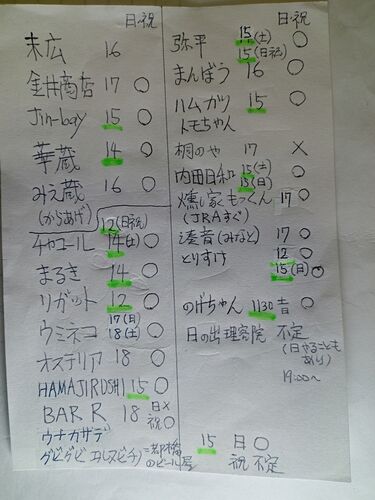 日・祝
末広 16
金井商店 17 ○
Jin-bay 15 ○
華蔵 14 ○
みえ蔵 16 ○
(からあげ) 12(日祝)
チャコール 14(土) ○
まるき 14 ○
リガット 12 ○
ウミネコ 17(日) 18(土) ○
オステリア 18 ○
HAMAJIROSHI 15 ○
BAR R 18 日× 祝○
ウナカザデ
グビグビ
のビール屋
日・祝
弥平 15(土) 15(日祝) ○
まんぼう 16 ○
ハムカツ 15 ○
トモちゃん
桐のや 17 ×
内田日和 15(土) 15(日) ○
燻し家 もっくん 17 ○
(JRAすぐ)
湊音(みなと) 17 ○
とりすけ 12 ○
15(日) ○
のげちゃん 1130 ○
日の出理容院 不定
(日やることも
あり)
19:00〜
15 日○
祝 不定